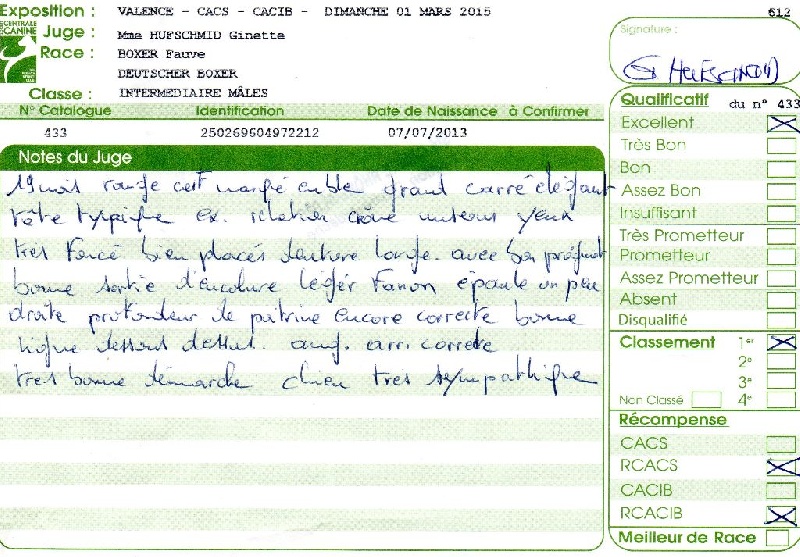 Exposition : VALENCE - CACS - CACIB - DIMANCHE 01 MARS 2015
612
CENTRALE
CANINE
Juge : Mme HUFSCHMID Ginette
Race : BOXER Fauve
DEUTSCHER BOXER
Classe : INTERMEDIAIRE MÂLES
N° Catalogue Identification Date de Naissance à Confirmer
433 250269604972212 07/07/2013
Notes du Juge
19 mois rouge cerf marqué ensble grand carré élégant
tête typique ex. relation crâne museau yeux
tres foncé bien placés denture large. avec bon
bonne sortie d'encolure léger fanon épaule un peu
droite profondeur de poitrine encore correcte bonne
ligne dessous dessus. ang. arr. correcte
tres bonne démarche chien tres sympathique
Signature :
Qualificatif du n° 433
Excellent
Très Bon
Bon
Assez Bon
Insuffisant
Très Prometteur
Prometteur
Assez Prometteur
Absent
Disqualifié
Classement 1er
2e
3e
Non Classé 4e
Récompense
CACS
RCACS
CACIB
RCACIB
Meilleur de Race